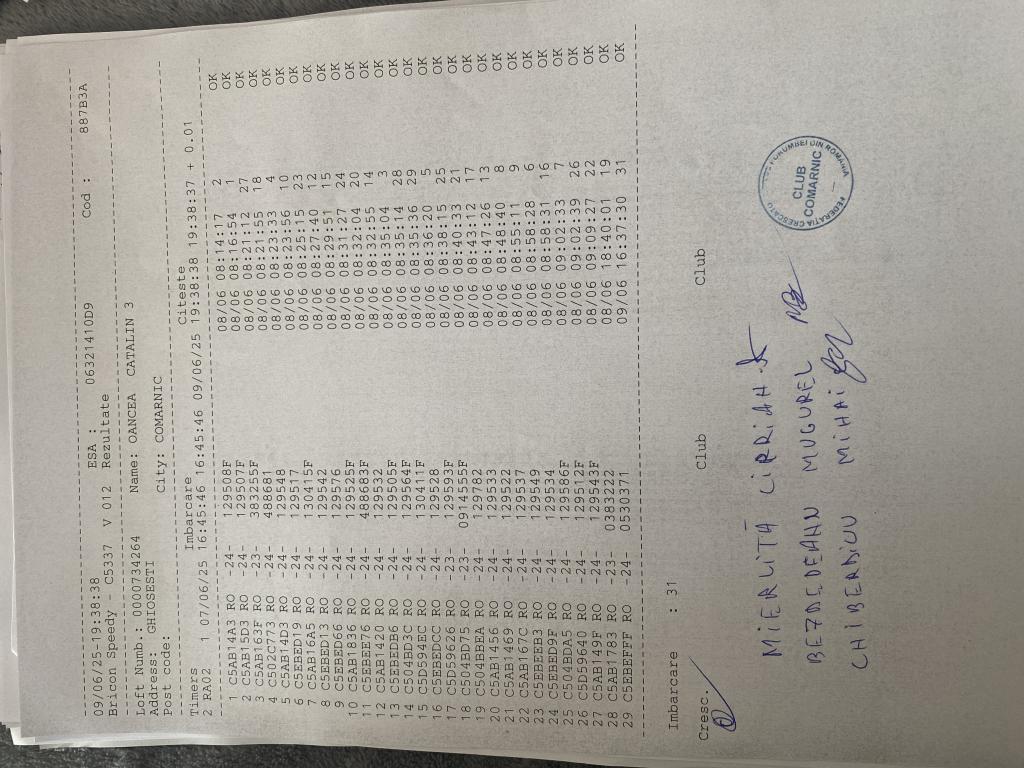 09/06/25 19:38:38 ESA : 06321410D9 Cod : 887B3A
Bricon Speedy - C5337 V 012 Rezultate
Loft Numb.: 0000734264 Name: OANCEA CATALIN 3
Address: GHIOSESTI
Post code: City: COMARNIC
Timers Imbarcare Citeste
2 RA02 1 07/06/25 16:45:46 16:45:46 09/06/25 19:38:38 19:38:37 + 0.01
1 C5AB14A3 RO -24- 129508F 08/06 08:14:17 2 OK
2 C5AB15D3 RO -24- 129507F 08/06 08:16:54 1 OK
3 C5AB163F RO -23- 383255F 08/06 08:21:12 27 OK
4 C502C773 RO -24- 488681 08/06 08:21:55 18 OK
5 C5AB14D3 RO -24- 129548 08/06 08:23:33 4 OK
6 C5EBED19 RO -24- 129517 08/06 08:23:56 10 OK
7 C5AB16A5 RO -24- 130415F 08/06 08:25:15 23 OK
8 C5EBED13 RO -24- 129542 08/06 08:27:40 12 OK
9 C5EBED66 RO -24- 129576 08/06 08:29:51 15 OK
10 C5AB1836 RO -24- 129525F 08/06 08:31:27 24 OK
11 C5EBEE76 RO -24- 488683F 08/06 08:32:04 20 OK
12 C5AB1420 RO -24- 129532 08/06 08:32:55 14 OK
13 C5EBEDB6 RO -24- 129505F 08/06 08:35:04 3 OK
14 C504BD3C RO -24- 129564F 08/06 08:35:14 28 OK
15 C5D594EC RO -24- 130411F 08/06 08:35:36 29 OK
16 C5EBEDCC RO -24- 129528 08/06 08:36:20 5 OK
17 C5D59626 RO -23- 129593F 08/06 08:38:15 25 OK
18 C504BD75 RO -23- 0914555F 08/06 08:40:33 21 OK
19 C504BBEA RO -24- 129782 08/06 08:43:12 17 OK
20 C5AB1456 RO -24- 129533 08/06 08:47:26 13 OK
21 C5AB1469 RO -24- 129522 08/06 08:48:40 8 OK
22 C5AB167C RO -24- 129537 08/06 08:55:11 9 OK
23 C5EBEEB3 RO -24- 129549 08/06 08:58:28 6 OK
24 C5EBED9F RO -24- 129534 08/06 08:58:31 16 OK
25 C504BDA5 RO -24- 129586F 08/06 09:02:33 7 OK
26 C5D59640 RO -24- 129512F 08/06 09:02:39 26 OK
27 C5AB149F RO -24- 129543F 08/06 09:09:27 22 OK
28 C5AB1783 RO -23- 0383222 08/06 18:40:01 19 OK
29 C5EBEFFF RO -24- 0530371 09/06 16:37:30 31 OK
Imbarcare : 31
Cresc. Club Club
MIERLITĂ CIPRIAN
BEZDEDEANU MUGUREL
CHIBERDICU MIHAI
FEDERATIA CRESCATO PORUMBEI DIN ROMANIA
CLUB
COMARNIC